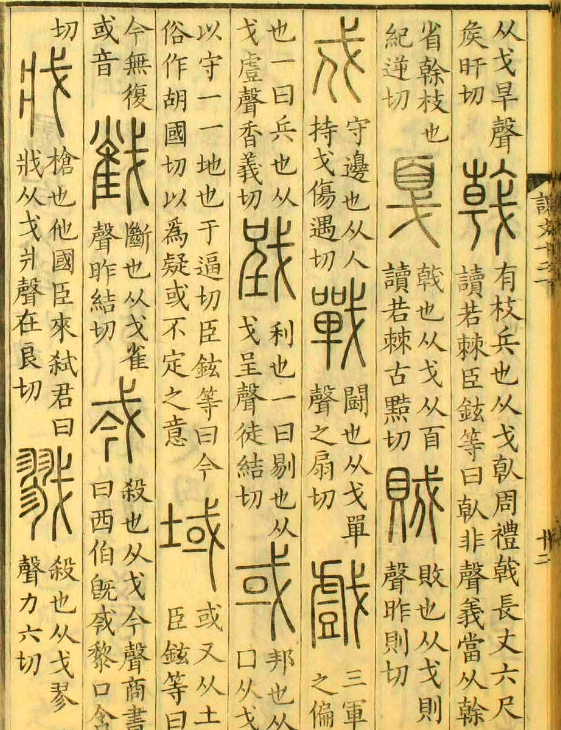 从戈旱聲
矦旰切
戟
有枝兵也从戈倝周禮戟長丈六尺
讀若棘臣鉉等曰倝非聲義當从榦
省榦枝也
紀逆切
戛
戟也从戈从百
讀若棘古黠切
賊
敗也从戈則
聲昨則切
戍
守邊也从人
持戈傷遇切
戰
鬭也从戈單
聲之扇切
戲
三軍
之偏
也一曰兵也从
戈䖒聲香義切
戜
利也一曰剔也从
戈呈聲徒結切
或
邦也从
口从戈
以守一一地也于逼切臣鉉等曰今
俗作胡國切以爲疑或不定之意
域
或又从土
臣鉉等曰
今無復
或音
截
斷也从戈雀
聲昨結切
㦰
殺也从戈今聲商書
曰西伯旣㦰黎口含
切
戕
槍也他國臣來弑君曰
戕从戈爿聲在良切
戮
殺也从戈翏
聲力六切